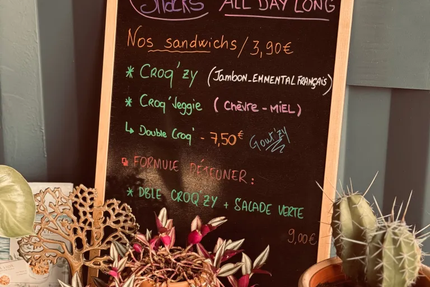 Snacks ALL DAY LONG
Nos sandwichs / 3,90€
* CROQ'ZY (JAMBON-EMMENTAL FRANÇAIS)
* CROQ'Veggie (CHÈVRE-MIEL)
↳ DOUBLE CROQ' - 7,50€ Gour'zy
FORMULE DÉJEUNER :
* DBLE CROQ'ZY + SALADE VERTE
9,00€